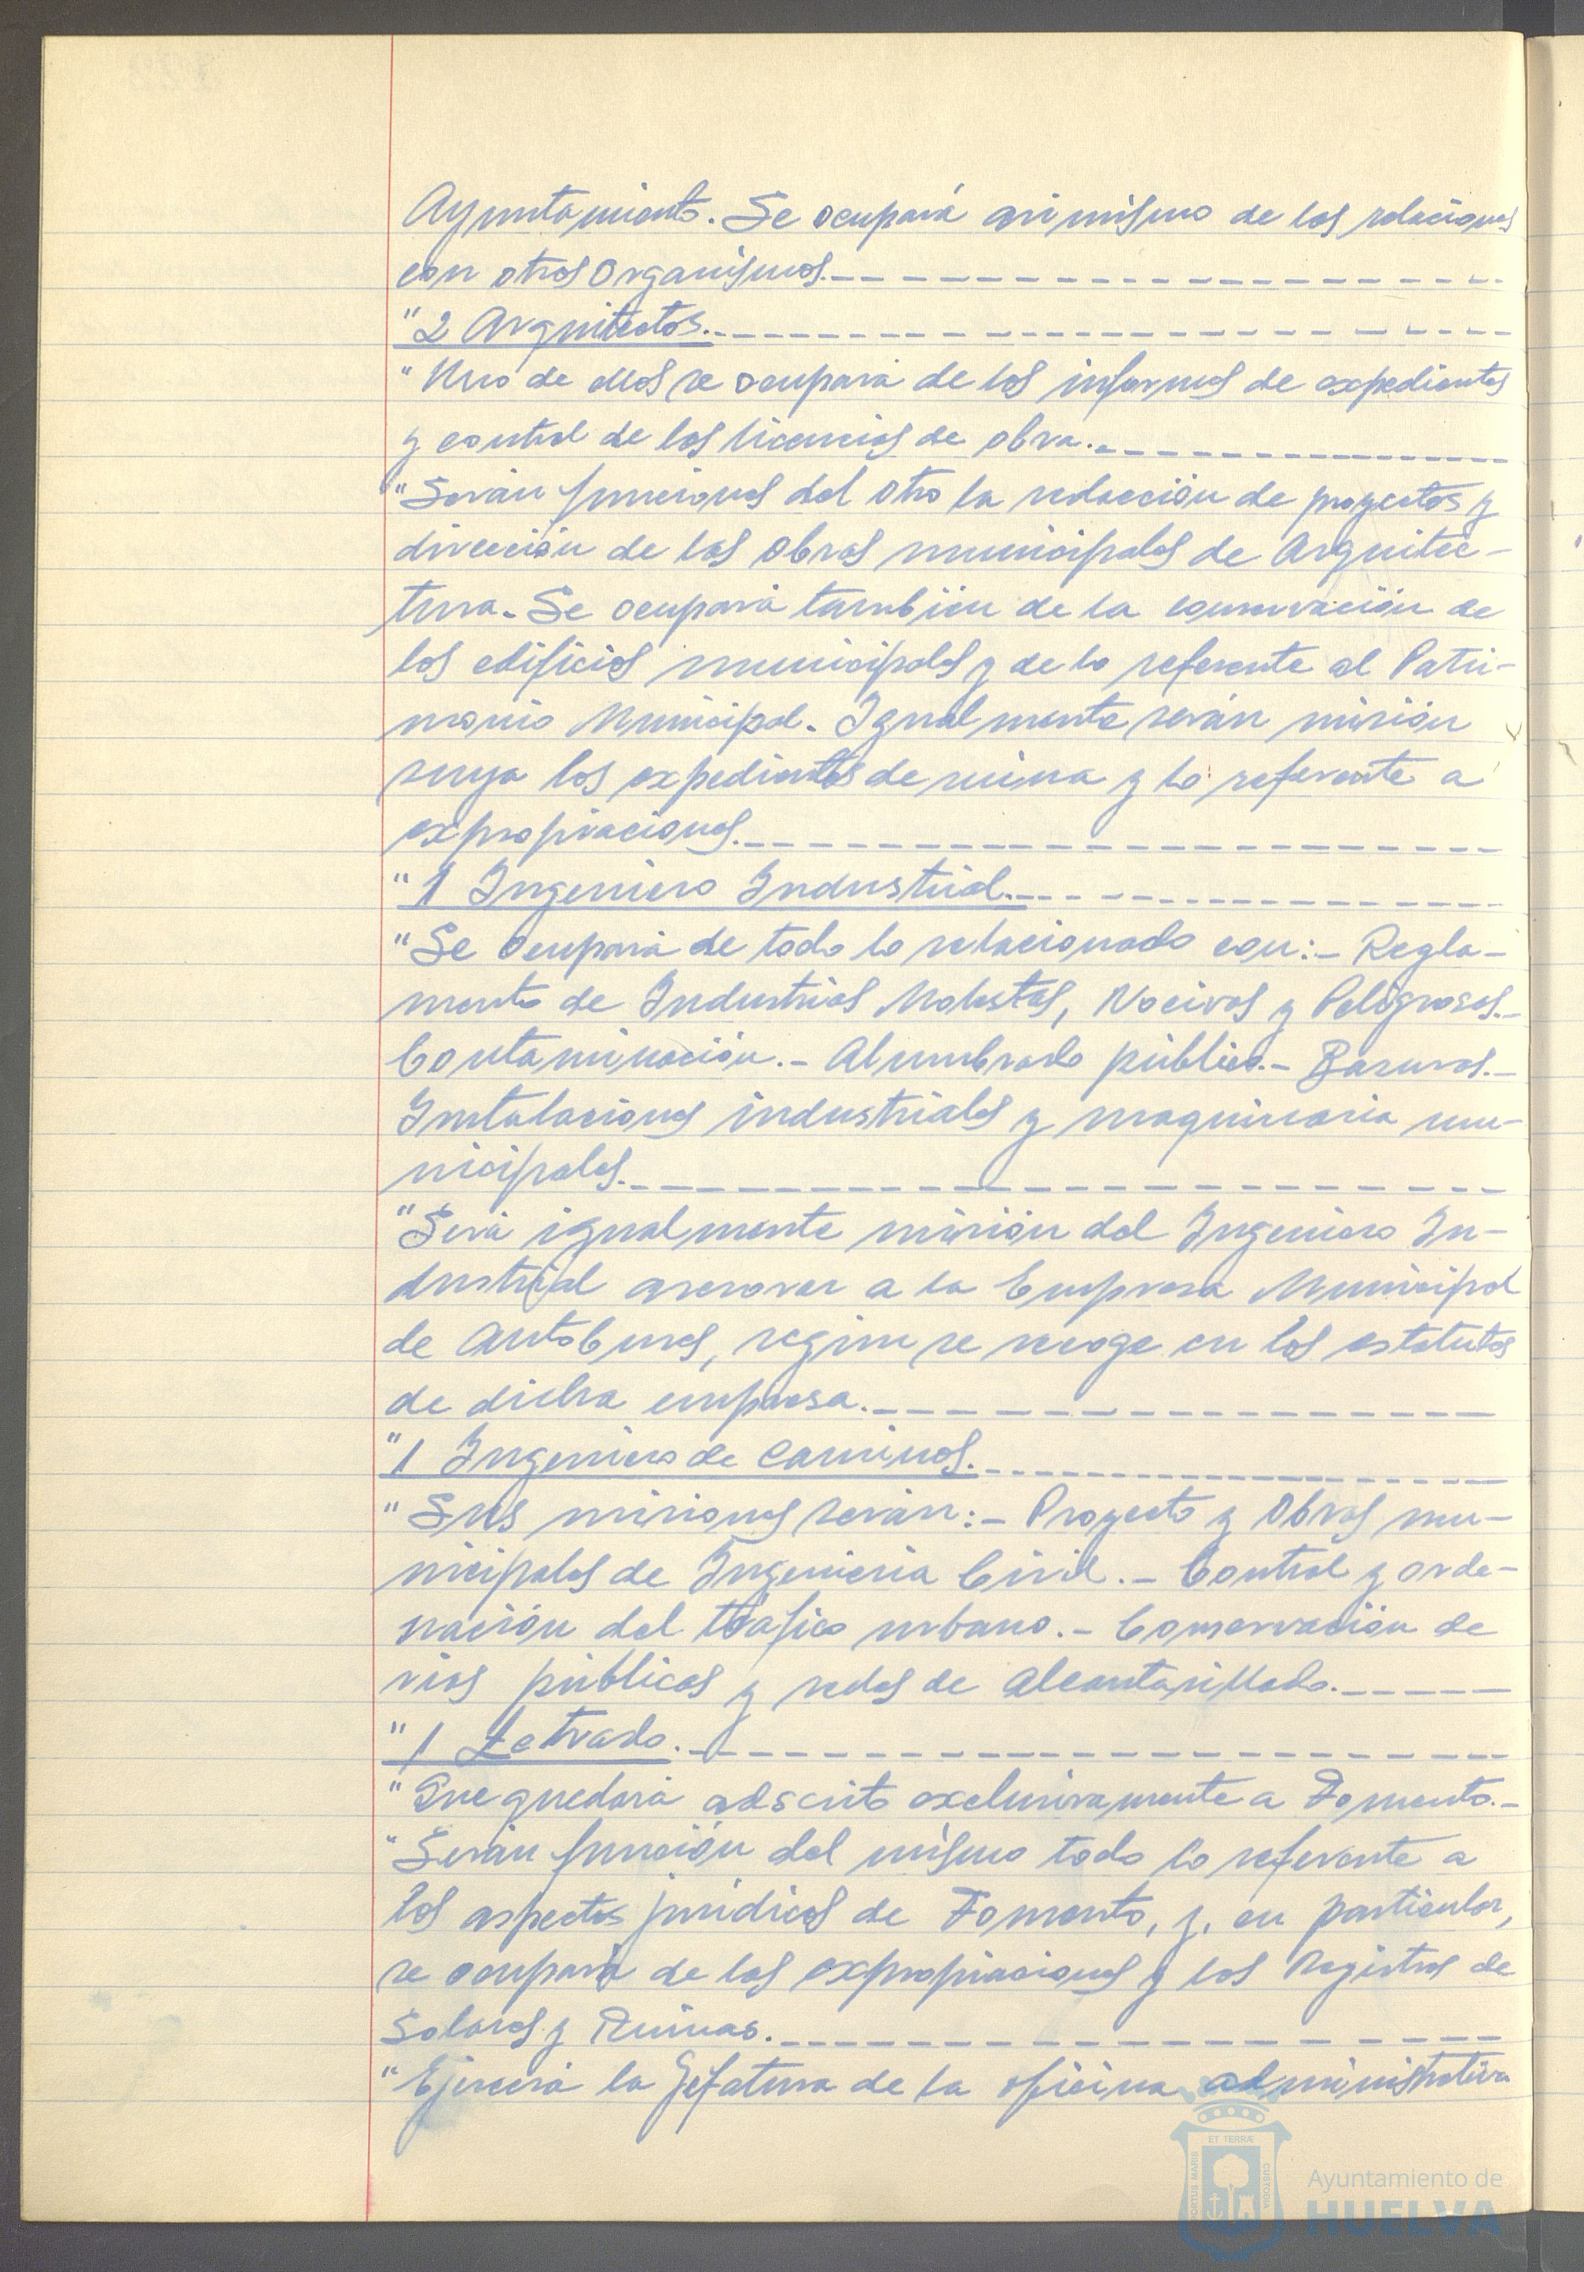 Ayuntamiento. Se ocupará asimismo de las relaciones
con otros Organismos.
"2 Arquitectos.
"Uno de ellos se ocupará de los informes de expedientes
y control de las licencias de obra.
"Serán funciones del otro la redacción de proyectos y
dirección de las obras municipales de Arquitec-
tura. Se ocupará también de la conservación de
los edificios municipales y de lo referente al Patri-
monio Municipal. Igualmente serán misión
suya los expedientes de ruina y lo referente a
expropiaciones.
"1 Ingeniero Industrial.
"Se ocupará de todo lo relacionado con:- Regla-
mento de Industrias Molestas, Nocivas y Peligrosas.-
Contaminación.- Alumbrado público.- Basuras.-
Instalaciones industriales y maquinaria mu-
nicipales.
"Será igualmente misión del Ingeniero In-
dustrial asesorar a la Empresa Municipal
de Autobuses, según se recoge en los estatutos
de dicha empresa.
"1 Ingeniero de Caminos.
"Sus misiones serán:- Proyecto y Obras mu-
nicipales de Ingeniería Civil.- Control y orde-
nación del tráfico urbano.- Conservación de
vías públicas y redes de Alcantarillado.
"1 Letrado.
"Que quedará adscrito exclusivamente a Fomento.-
"Serán función del mismo todo lo referente a
los aspectos jurídicos de Fomento, y, en particular,
se ocupará de las expropiaciones y los Registros de
Solares y Ruinas.
"Ejercerá la Jefatura de la oficina administrativa
PORTUS MARIS
ET TERRÆ
CUSTODIA
Ayuntamiento de
HUELVA